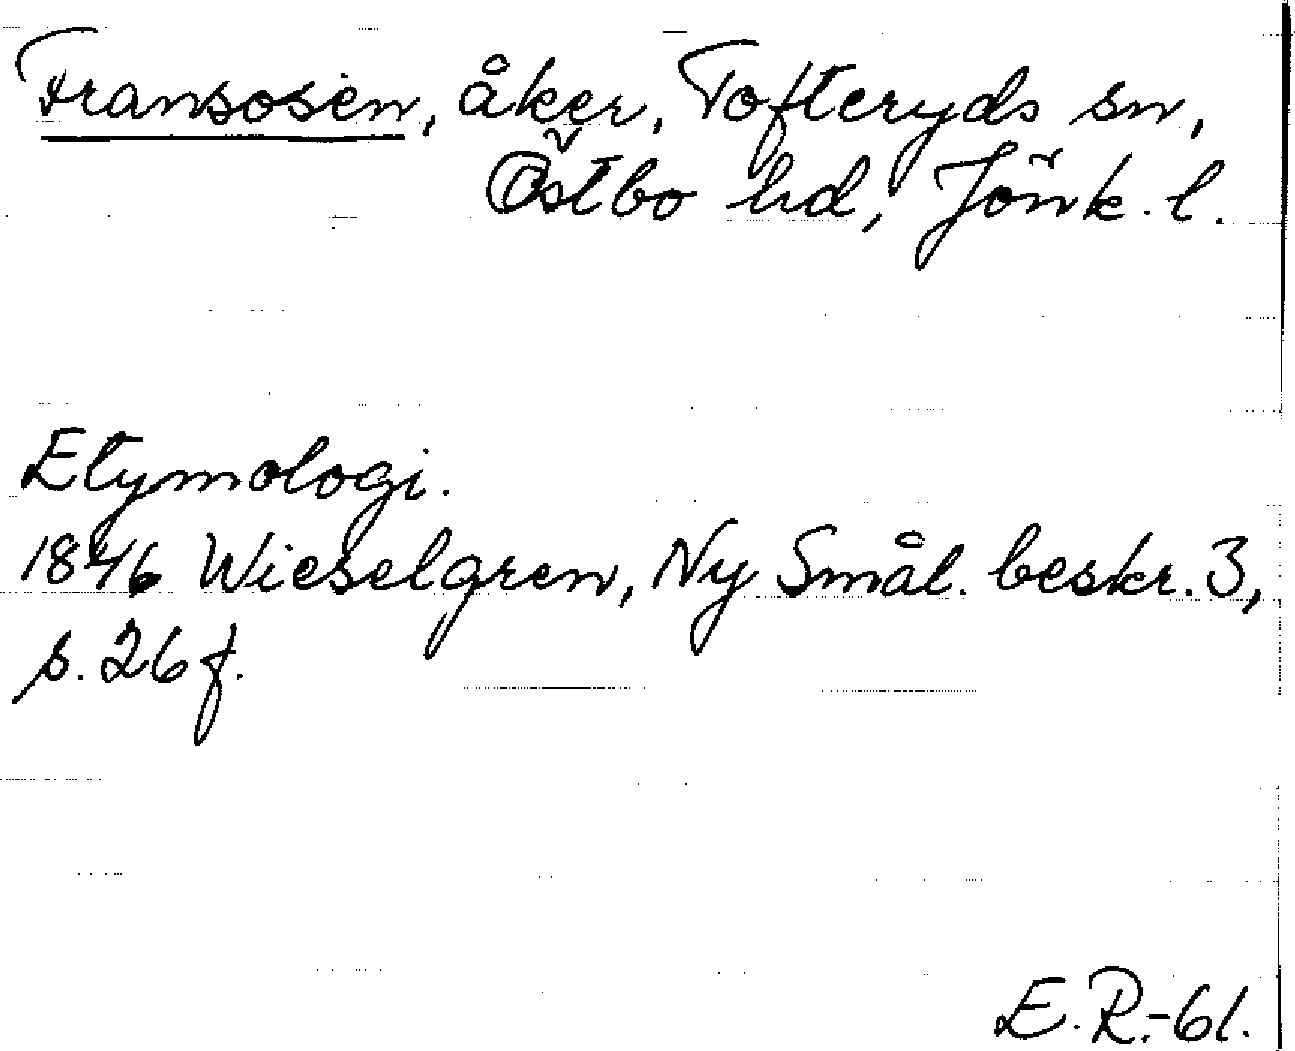 Fransosen, åker, Tofteryds sn,
Östbo hd, Jönk. l.
Etymologi.
1846 Wieselgren, Ny Smål. beskr. 3,
s. 26 f.
E. R.-61.